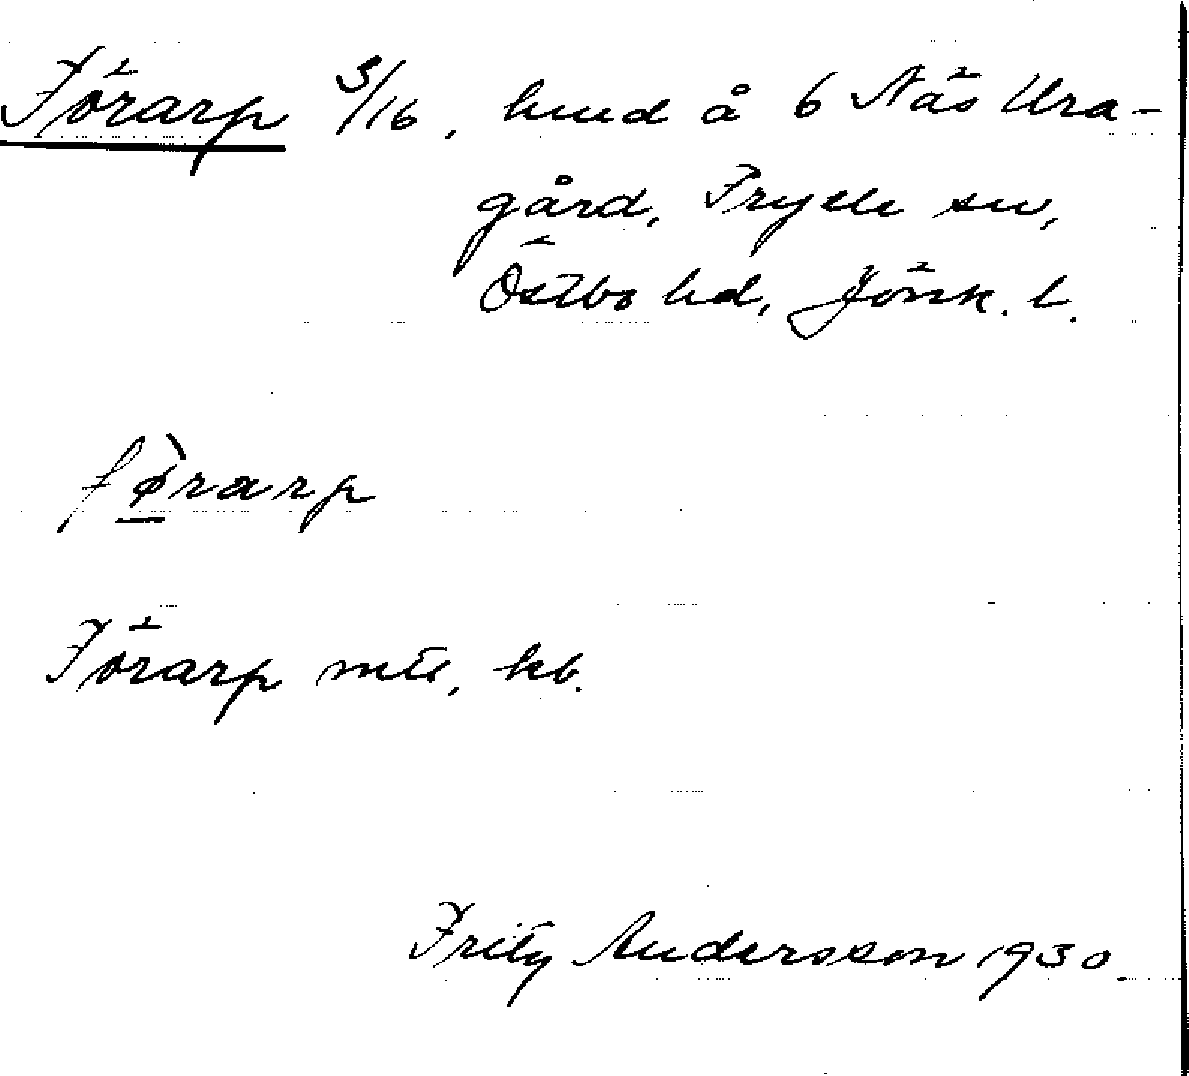 Förarp 3/16, lund å 6 Näs Ura-
gård, Tryele sn,
Östbo hd, Jönk. l.
fø̀rarp
Förarp mtl, kb.
Fritz Andersson 1930.